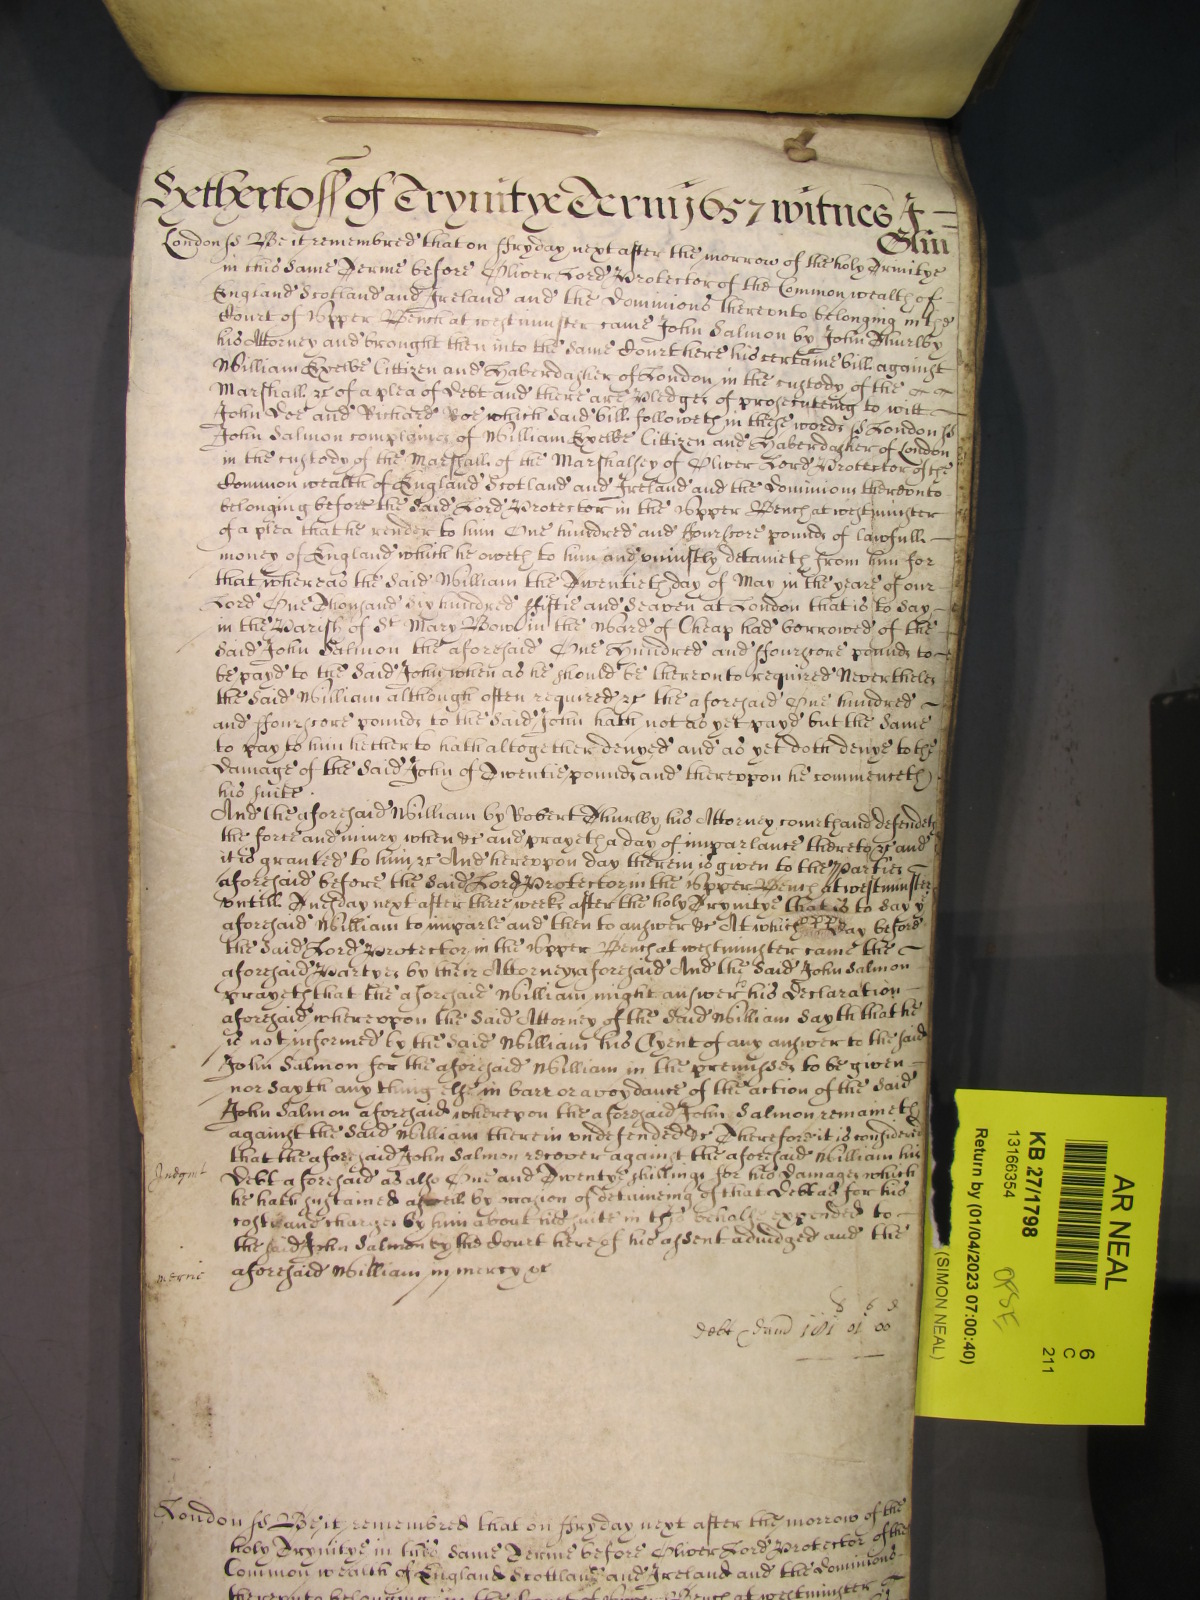 Hethertoss of Trynitye Terme 1657 witnes J
Glin
London ss Be it remembred that on ffryday next after the morrow of the holy Trinitye
in this same Terme before Oliver Lord Protector of the Common wealth of
England Scotland and Ireland and the Dominions thereonto belonging in the
Court of Upper Bench at westminster came John Salmon by John Thurlby
his Attorney and brought then into the same Court here his certaine bill against
William Cittizen and Haberdasher of London in the custody of the
Marshall &c of a plea of Debt and there are Pledges of prosecuteing to witt
John Doe and Richard Roe which said bill followeth in these words ss London ss
John Salmon complaines of William Cittizen and Haberdasher of London
in the custody of the Marshall of the Marshalsey of Oliver Lord Protector of the
Common wealth of England Scotland and Ireland and the Dominions thereonto
belonging before the said Lord Protector in the Upper Bench at westminster
of a plea that he render to him One hundred and ffourscore pounds of lawfull
money of England which he oweth to him and uniustly detaineth from him for
that whereas the said William the Twentieth day of May in the yeare of our
Lord One Thousand six hundred ffiftie and seaven at London that is to say
in the Parish of St Mary Bow in the Ward of Cheap had borrowed of the
said John Salmon the aforesaid One Hundred and ffourscore pounds to
be payd to the said John when as he should be thereonto required Neverthelesse
the said William although often required &c the aforesaid One hundred
and ffourscore pounds to the said John hath not as yet payd but the same
to pay to him hetherto hath altogether denyed and as yet doth denye to the
damage of the said John of Twentie pounds and thereuppon he commenceth
his suite
And the aforesaid William by Robert Thurlby his Attorney cometh and defendeth
the force and iniury when &c and prayeth a day of imparlance thereto &c and
it is granted to him &c And hereuppon day therein is given to the Parties
aforesaid before the said Lord Protector in the Upper Bench at westminster
untill Tuesday next after three weeks after the holy Trynitye that is to say ye
aforesaid William to imparle and then to answer &c At which day before
the said Lord Protector in the Upper Bench at westminster came the
aforesaid Partyes by their Attorneys aforesaid And the said John Salmon
prayeth that the aforesaid William might answer to his declaration
aforesaid whereuppon the said Attorney of the said William sayth that he
is not informed by the said William his Clyent of any answer to the said
John Salmon for the aforesaid William in the premisses to be given
nor sayth any thing else in barr or avoydance of the action of the said
John Salmon aforesaid whereupon the aforesaid John Salmon remaineth
against the said William therein undefended &c Therefore it is considered
that the aforesaid John Salmon recover against the aforesaid William his
Judgmt
Debt aforesaid as also One and Twentye shillings for his damages which
he hath sustained aswell by occasion of deteineing of that Debt as for his
costs and charges by him about his suite in this behalfe expended to
the said John Salmon by the Court here of his assent adiudged and the
mercie
aforesaid William in mercy &c
debt dam 181 01 00
London ss Be it remembred that on ffryday next after the morrow of the
holy Trynitye in this same Terme before Oliver Lord Protector of the
Common wealth of England Scottland and Ireland and the Dominions
AR NEAL
6
C
211
KB 27/1798
13166354
Return by (01/04/2023 07:00:40)
(SIMON NEAL)